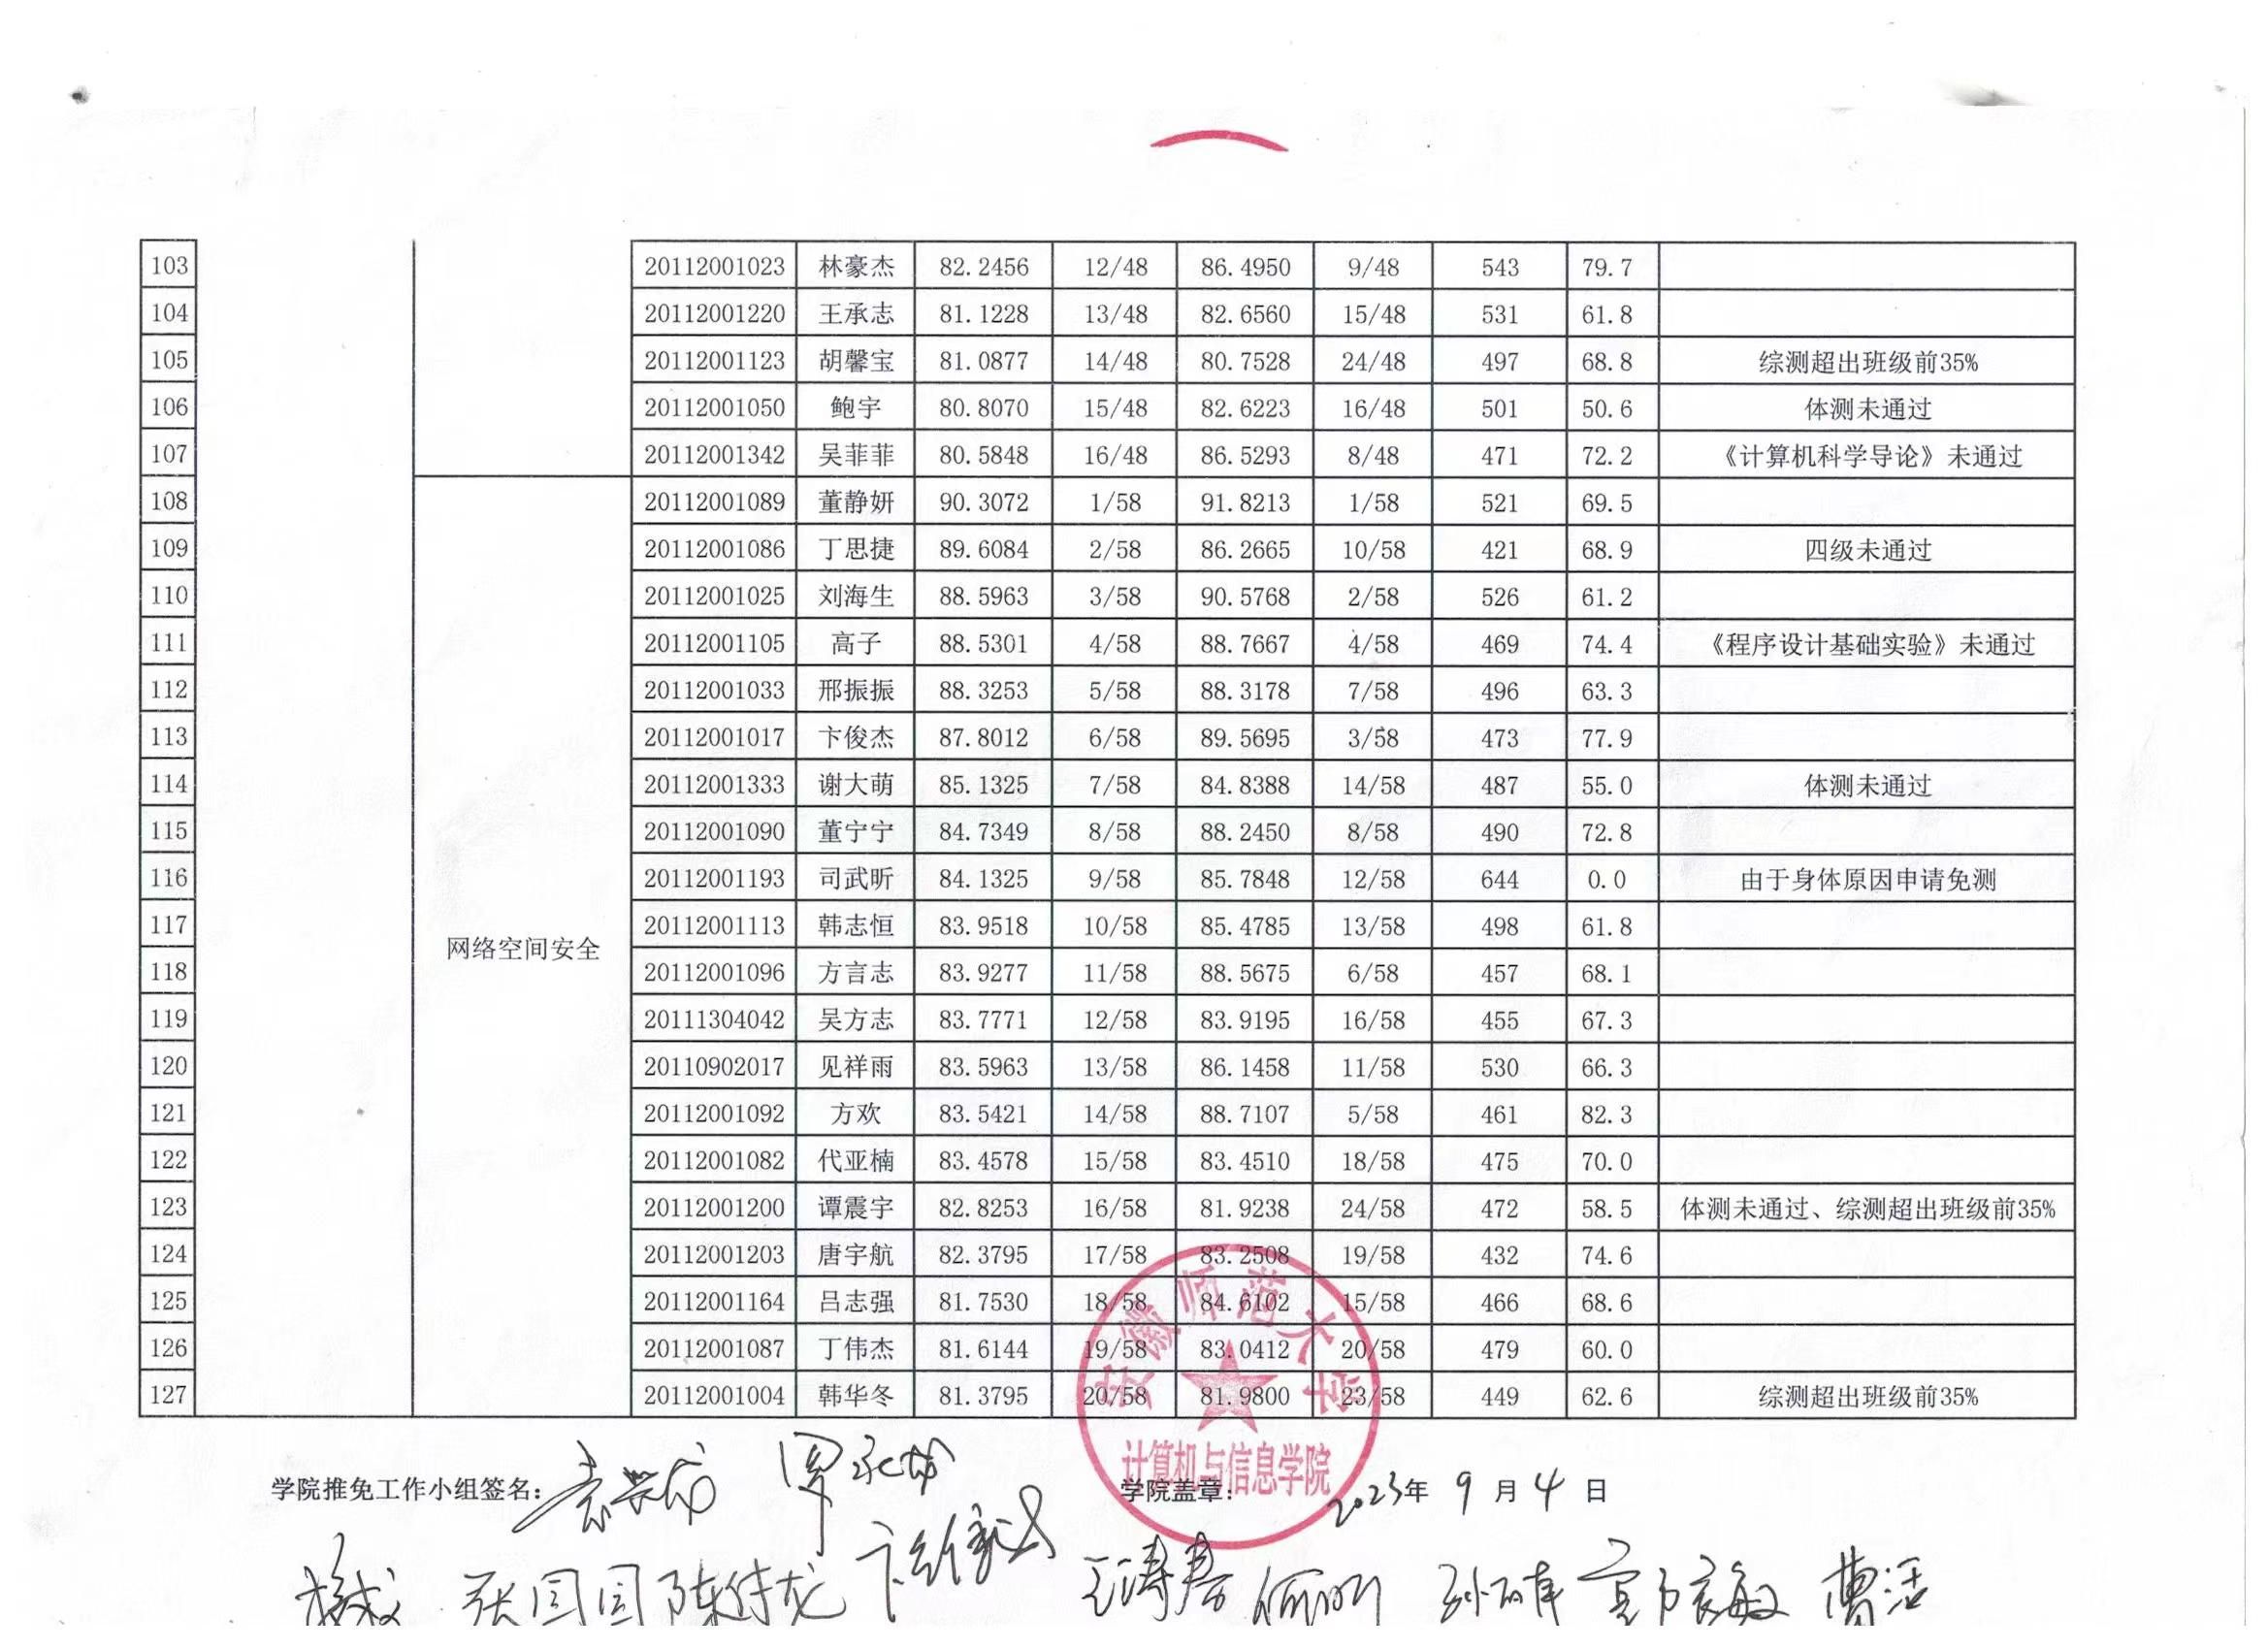 103 20112001023 林豪杰 82.2456 12/48 86.4950 9/48 543 79.7
104 20112001220 王承志 81.1228 13/48 82.6560 15/48 531 61.8
105 20112001123 胡馨宝 81.0877 14/48 80.7528 24/48 497 68.8 综测超出班级前35%
106 20112001050 鲍宇 80.8070 15/48 82.6223 16/48 501 50.6 体测未通过
107 20112001342 吴菲菲 80.5848 16/48 86.5293 8/48 471 72.2 《计算机科学导论》未通过
108 20112001089 董静妍 90.3072 1/58 91.8213 1/58 521 69.5
109 20112001086 丁思捷 89.6084 2/58 86.2665 10/58 421 68.9 四级未通过
110 20112001025 刘海生 88.5963 3/58 90.5768 2/58 526 61.2
111 20112001105 高子 88.5301 4/58 88.7667 4/58 469 74.4 《程序设计基础实验》未通过
112 20112001033 邢振振 88.3253 5/58 88.3178 7/58 496 63.3
113 20112001017 卞俊杰 87.8012 6/58 89.5695 3/58 473 77.9
114 20112001333 谢大萌 85.1325 7/58 84.8388 14/58 487 55.0 体测未通过
115 20112001090 董宁宁 84.7349 8/58 88.2450 8/58 490 72.8
116 20112001193 司武昕 84.1325 9/58 85.7848 12/58 644 0.0 由于身体原因申请免测
117 20112001113 韩志恒 83.9518 10/58 85.4785 13/58 498 61.8
网络空间安全
118 20112001096 方言志 83.9277 11/58 88.5675 6/58 457 68.1
119 20111304042 吴方志 83.7771 12/58 83.9195 16/58 455 67.3
120 20110902017 见祥雨 83.5963 13/58 86.1458 11/58 530 66.3
121 20112001092 方欢 83.5421 14/58 88.7107 5/58 461 82.3
122 20112001082 代亚楠 83.4578 15/58 83.4510 18/58 475 70.0
123 20112001200 谭震宇 82.8253 16/58 81.9238 24/58 472 58.5 体测未通过、综测超出班级前35%
124 20112001203 唐宇航 82.3795 17/58 83.2508 19/58 432 74.6
125 20112001164 吕志强 81.7530 18/58 84.6102 15/58 466 68.6
126 20112001087 丁伟杰 81.6144 19/58 83.0412 20/58 479 60.0
127 20112001004 韩华冬 81.3795 20/58 81.9800 23/58 449 62.6 综测超出班级前35%
安徽师范大学
计算机与信息学院
学院推免工作小组签名： 学院盖章： 2023年 9 月 4 日
张国国 陈付龙